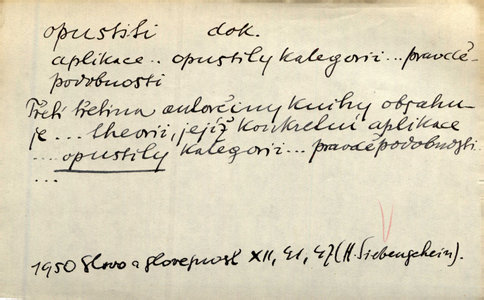 opustiti dok.
aplikace .. opustily kategorii ... pravdě-
podobnosti
Třetí třetina autorčiny knihy obsahu-
je ... theorii, jejíž konkretní aplikace
... opustily kategorii ... pravděpodobnosti
...
1950 Slovo a slovesnost XII, 41, 47 (H. Siebenschein).